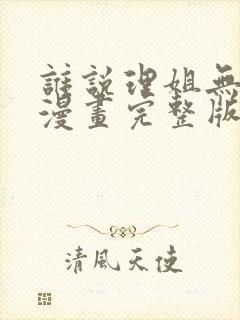 誰說理姐無
漫畫完整版
清風天使